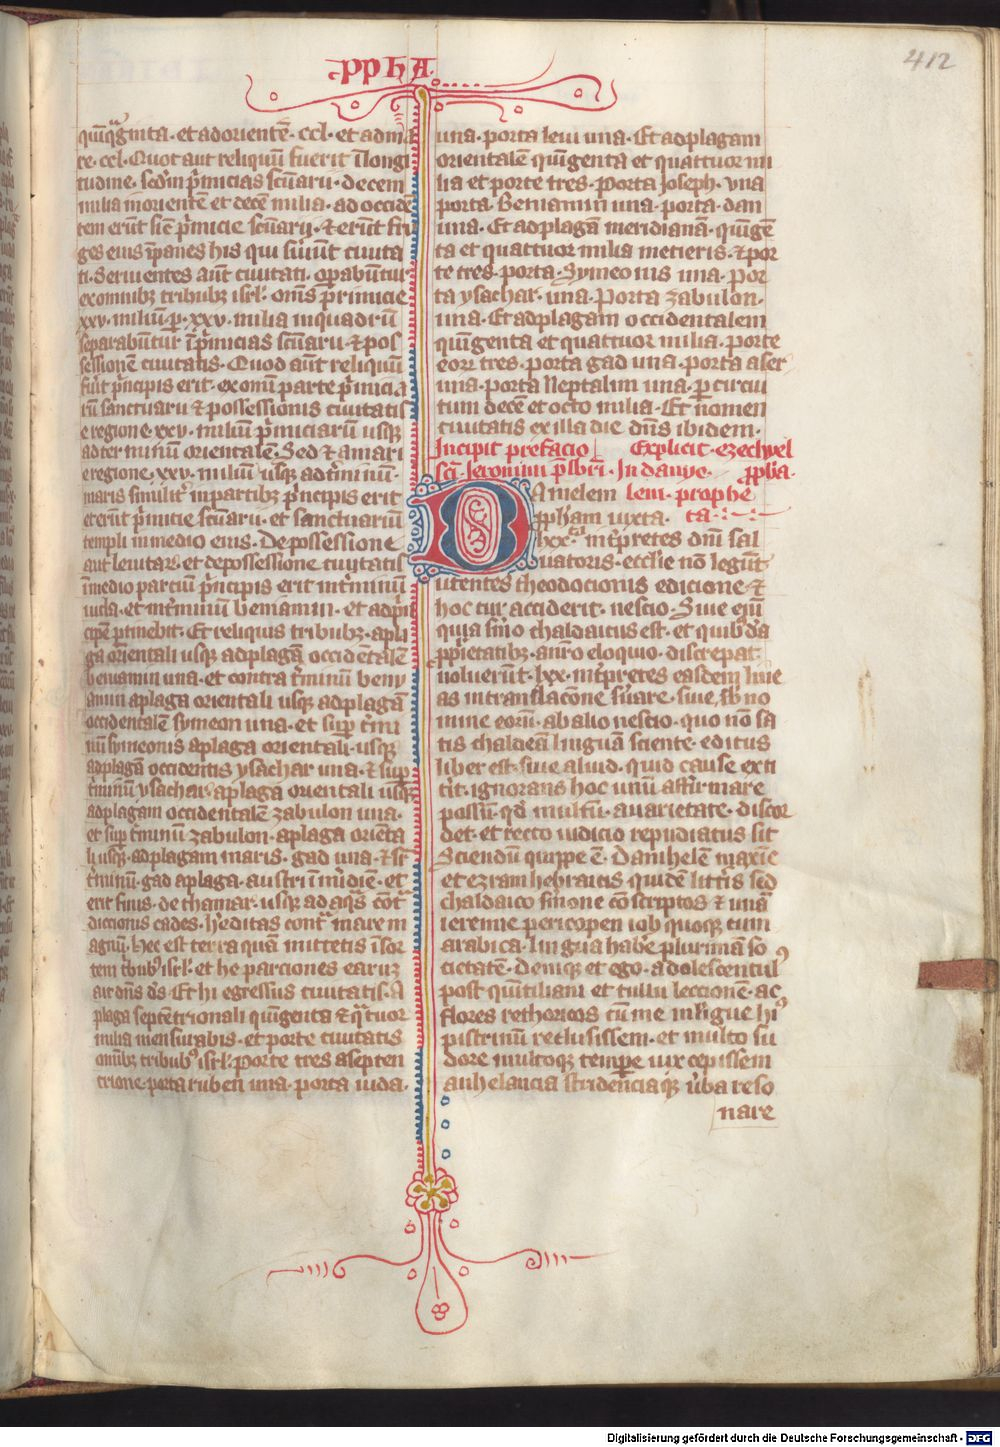 .ppħA.
412
quīq̄ginta. et ad orientē. ccl. et ad ma
re. ccl. Quot aut reliquū fuerit ī longi
tudine. scd'm p̄micias sc̄uarii. decem
milia in orientē et decē milia. ad occidē
tem erūt sic p̄micie sc̄uarij. ⁊ erūt fru
ges eius ī panes his qui s'uiūt ciuita
ti. Seruientes aūt ciuitati. op̄abūtur
ex omnibꝫ tribubꝫ isrl'. Om̄s p̄rimicie
xxv. miliū. ꝑ. xxv. milia in quadrū
separabūtur ī p̄micias sc̄uarii ⁊ pos
sessionē ciuitatis. Quod aūt reliquū
fu'it p̄ncipis erit. ex omni parte p̄micia
rū sanctuarii ⁊ possessionis ciuitatis
e regione. xxv. miliū p̄miciarū usqꝫ
ad terminū orientalē. Sed ⁊ a mari
e regione. xxv. miliū usqꝫ ad t'minū.
maris similit' in partibꝫ p̄ncipis erit
et erūt p̄imicie sc̄uarii. et sanctuariū
templi in medio eius. De possessione
aut leuitaꝝ. et de possessione ciuitatis
ī medio partiū p̄ncipis erit int' t'minū
iuda. et int' t'minū beniamin. et ad p̄n
cipē ꝑtinebit. Et reliquis tribubꝫ. a pla
ga orientali usqꝫ ad plagā occidentalē
beniamin una. et contra t'minū beny
amin a plaga orientali usqꝫ ad plagā
occidentalē symeon una. et sup̄ t'mi
nū symeonis a plaga orientali. usqꝫ
ad plagā occidentis ysachar una. ⁊ sup̄
t'minū ysachar a plaga orientali usqꝫ
ad plagam occidentalē zabulon una.
et sup̄ t'minū zabulon. a plaga oriēta
li usqꝫ. ad plagam maris. gad una. ⁊ sr̄
t'minū gad a plaga. austri ī m'idiē. et
erit finis. de thamar. usqꝫ ad aq̄s cōt'
diccionis cades. h'editas cont' mare m
agnū. Hec est terra quā mittetis ī sor
tem t'bubꝰ isrl'. et he parciones earuꝫ
ait dn̄s d's. Et hi egressus ciuitatis. A
plaga septētrionali quīgenta ⁊ q̄tuor
milia mensurabis. et porte ciuitatis
omībꝫ tribubꝰ isrl'. Porte tres a septen
trione. porta ruben una. porta iuda.
una. porta leui una. Et ad plagam
orientalē quīgenta et quattuor mi
lia et porte tres. Porta Joseph. vna
porta. Beniamin una. porta. dan
una. Et ad plagā meridianā. quīgē
ta et quattuor milia metieris. ⁊ por
te tres. porta. Symeonis una. Por
ta ysachar. una. Porta zabulon.
una. Et ad plagam occidentalem
quīgenta et quattuor milia. Porte
eoꝝ tres. porta gad una. porta aser
una. porta Neptalim una. ꝑ circui
tum decē et octo milia. Et nomen
ciuitatis ex illa die dn̄s ibidem.
Incipit prefacio Explicit. ezechyel
sc̄i. Jeronimi p̄sbri. In danye. ꝓpħa.
DAnielem leni. prophe
ꝓpħam iuxta. ta.
lxx. int'pretes dn̄i sal
uatoris. ecclie nō legūt.
utentes theodocionis edicione. ⁊
hoc cur acciderit. nescio. Siue eniū
quia s'mo chaldaicus est. et quibꝰd'a
ꝓprietatibꝫ. a nr̄o eloquio. discrepat.
noluerūt. lxx. int'pretes easdem line
as in translac̄one s'uare. siue. sub no
mine eorū. ab alio nescio. quo nō sa
tis chaldeā linguā sciente. editus
liber est. siue aliud. quid cause exti
t'it. ignorans hoc unū affirmare
possū. qd' multū. a uarietate. discor
det. et recto iudicio repudiatus sit
Sciendū quippe ē. Danihelē maxīe
et ezram hebraicis quidē litt'is sed
chaldaico s'mone cōscriptos ⁊ unā
ieremie pericopen iob quoqꝫ cum
arabica. lingua hab'e plurimā so
cietatē. Deniqꝫ et ego. adolescentulꝰ
post quītiliani et tullii leccionē. ac
flores rethoricos cū me in līgue hiꝰ
pistrinū reclusissem. et multo su
dore multoqꝫ tempe uix cepissem
anhelancia stridenciaqꝫ u'ba reso
nare
Digitalisierung gefördert durch die Deutsche Forschungsgemeinschaft - DFG